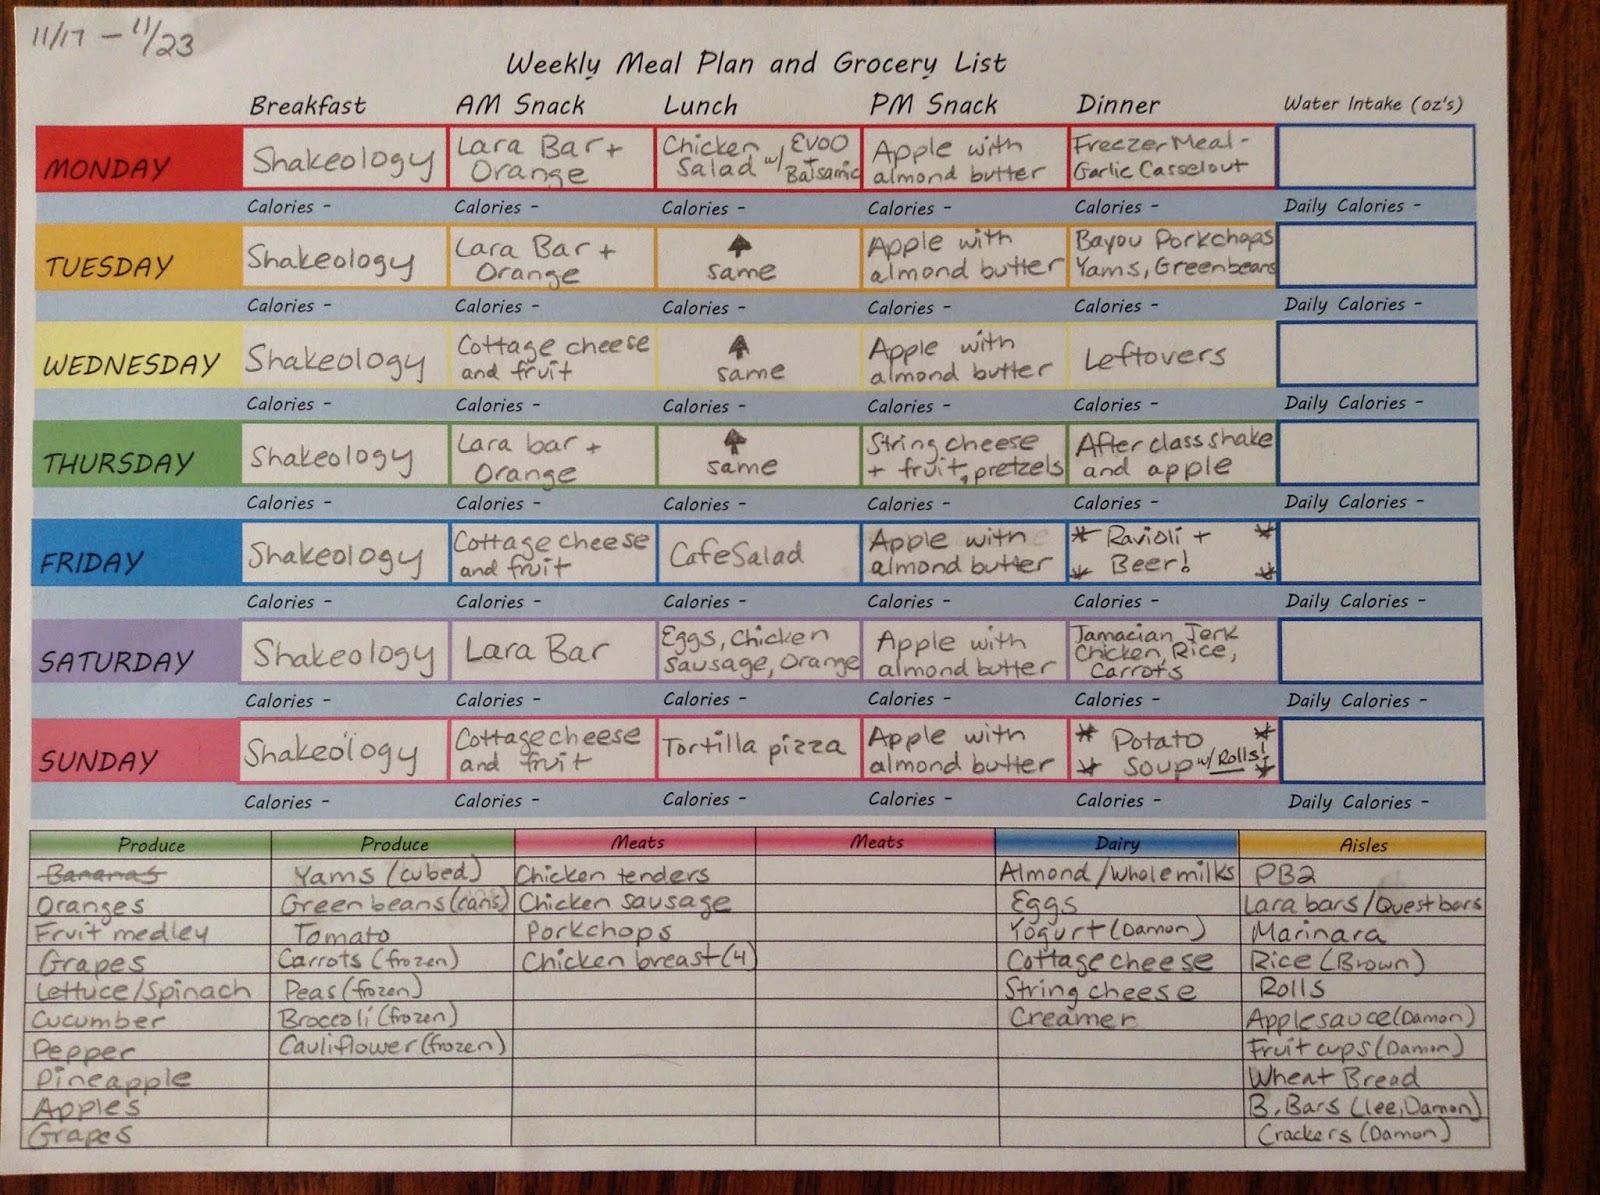 11/17 - 11/23
Weekly Meal Plan and Grocery List
Breakfast AM Snack Lunch PM Snack Dinner Water Intake (oz's)
MONDAY
Shakeology
Lara Bar +
Orange
Chicken
Salad w/ EVOO
+
Balsamic
Apple with
almond butter
Freezer Meal -
Garlic Casselout
Calories - Calories - Calories - Calories - Calories - Daily Calories -
TUESDAY
Shakeology
Lara Bar +
Orange
↑
same
Apple with
almond butter
Bayou Porkchops
Yams, Greenbeans
Calories - Calories - Calories - Calories - Calories - Daily Calories -
WEDNESDAY
Shakeology
Cottage cheese
and fruit
↑
same
Apple with
almond butter
Leftovers
Calories - Calories - Calories - Calories - Calories - Daily Calories -
THURSDAY
Shakeology
Lara bar +
Orange
↑
same
String cheese
+ fruit, pretzels
After class shake
and apple
Calories - Calories - Calories - Calories - Calories - Daily Calories -
FRIDAY
Shakeology
Cottage cheese
and fruit
Cafe Salad
Apple with
almond butter
* Ravioli + *
* Beer! *
Calories - Calories - Calories - Calories - Calories - Daily Calories -
SATURDAY
Shakeology
Lara Bar
Eggs, Chicken
Sausage, Orange
Apple with
almond butter
Jamacian Jerk
Chicken, Rice,
Carrots
Calories - Calories - Calories - Calories - Calories - Daily Calories -
SUNDAY
Shakeology
Cottage cheese
and fruit
Tortilla pizza
Apple with
almond butter
* Potato *
* Soup w/ Rolls! *
Calories - Calories - Calories - Calories - Calories - Daily Calories -
Produce Produce Meats Meats Dairy Aisles
Bananas Yams (cubed) Chicken tenders Almond/Whole milks PB2
Oranges Green beans (cans) Chicken sausage Eggs Lara bars/Quest bars
Fruit medley Tomato Porkchops Yogurt (Damon) Marinara
Grapes Carrots (frozen) Chicken breast (4) Cottage cheese Rice (Brown)
Lettuce/Spinach Peas (frozen) String cheese Rolls
Cucumber Broccoli (frozen) Creamer Applesauce (Damon)
Pepper Cauliflower (frozen) Fruit cups (Damon)
Pineapple Wheat Bread
Apples B. Bars (lee, Damon)
Grapes Crackers (Damon)